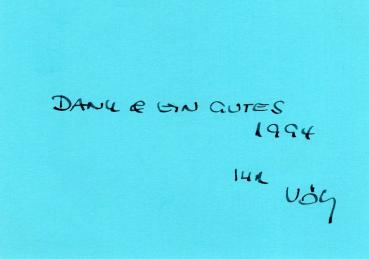 DANK & EIN GUTES
1994
IHR